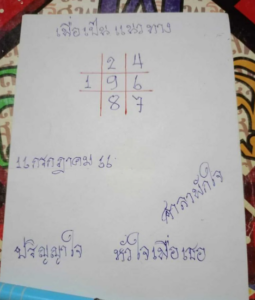 เพื่อเป็นแนวทาง
2 4
1 9 6
8 7
16 กรกฎาคม 66
ศาลาพักใจ
ปริญญาใจ หัวใจเพื่อเธอ